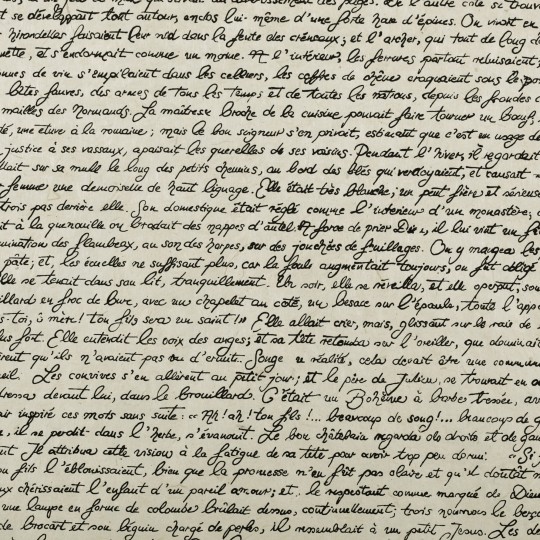 et se développait tout autour, enclos lui-même d'une forte haie d'épines. On vivait en
hirondelles faisaient leur nid dans la fente des créneaux; et l'archer, qui tout le long d
et s'endormait comme un moine. A l'intérieur, les ferrures partout reluisaient;
de vin s'empilaient dans les celliers, les coffres de chêne craquaient sous le
bêtes fauves, des armes de tous les temps et de toutes les nations, depuis les frondes
mailles des Normands. La maîtresse broche de la cuisine pouvait faire tourner un bœuf
une étuve à la romaine; mais le bon seigneur s'en privait, estimant que c'est un usage de
justice à ses vassaux, apaisait les querelles de ses voisins. Pendant l'hiver, il regardait
sur sa mule le long des petits chemins, au bord des blés qui verdoyaient, et causait
femme une demoiselle de haut lignage. Elle était très blanche, un peu fière et sérieuse
trois pas derrière elle. Son domestique était réglé comme l'intérieur d'un monastère;
à la quenouille ou brodait des nappes d'autel. A force de prier Dieu, il lui vint un
des flambeaux, au son des harpes, sur des jonchées de feuillages. On y mangea les
pâté; et, les écuelles ne suffisant plus, car la foule augmentait toujours, on fut obligé
se tenait dans son lit, tranquillement. Un soir, elle se réveilla, et elle aperçut, sou
en froc de bure, avec un chapelet au côté, une besace sur l'épaule, toute l'appa
-toi, ô mère! ton fils sera un saint!» Elle allait crier, mais, glissant sur le rais de
fort. Elle entendit les voix des anges; et sa tête retomba sur l'oreiller, que dominait
qu'ils n'avaient pas vu d'ermite. Songe ou réalité, cela devait être une communi
Les convives s'en allèrent au petit jour; et le père de Julien se trouvait en
devant lui, dans le brouillard. C'était un Bohême à barbe tressée, av
air inspiré ces mots sans suite: «Ah! ah! ton fils!... beaucoup de sang!... beaucoup de g
il se perdit dans l'herbe, s'évanouit. Le bon châtelain regarda de droite et de gau
Il attribua cette vision à la fatigue de sa tête pour avoir trop peu dormi. «Si j
fils l'éblouissaient, bien que la promesse n'en fût pas claire et qu'il doutât
chérissaient l'enfant d'un pareil amour; et, le respectant comme marqué de Dieu
une lampe en forme de colombe brûlait dessus, continuellement; trois nourrices le berça
de brocart et son béguin chargé de perles, il ressemblait à un petit Jésus. Les de